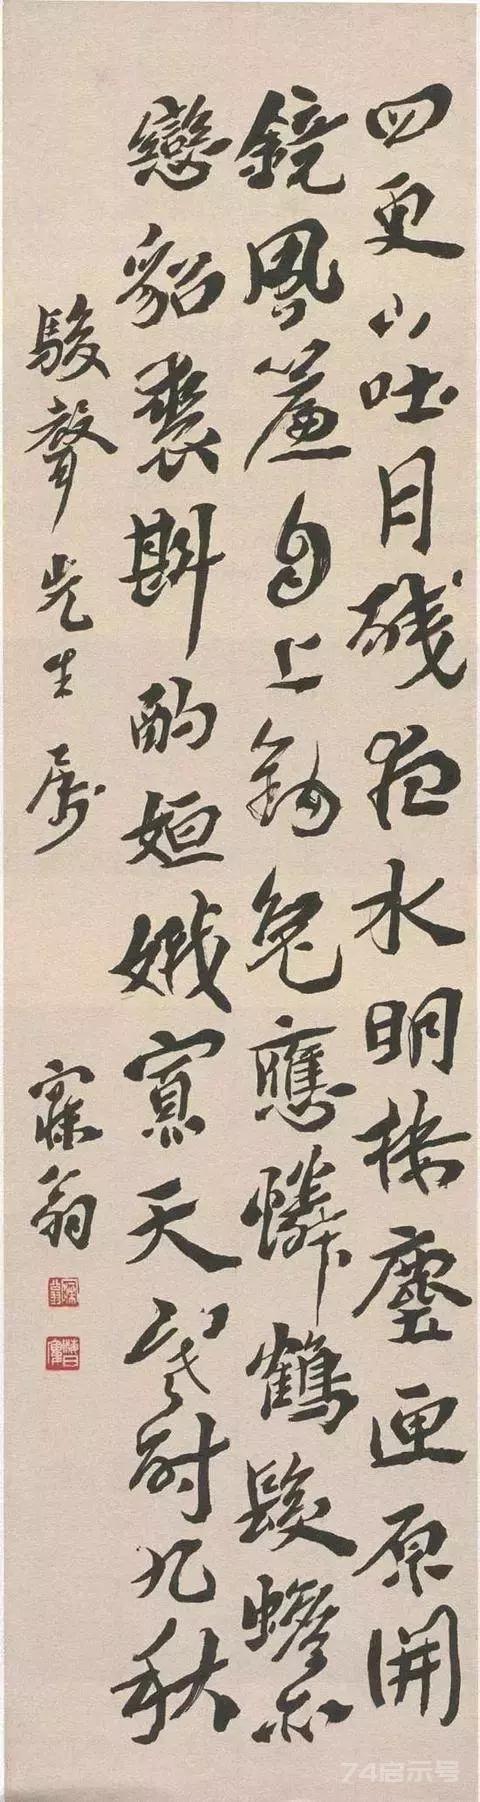 四更山吐月殘夜水明樓塵匣原開
鏡風簾自上鉤兔應憐鶴髮蟾亦
戀貂裘斟酌姮娥寡天寒耐九秋
駿聲先生屬
寐翁
74启示号